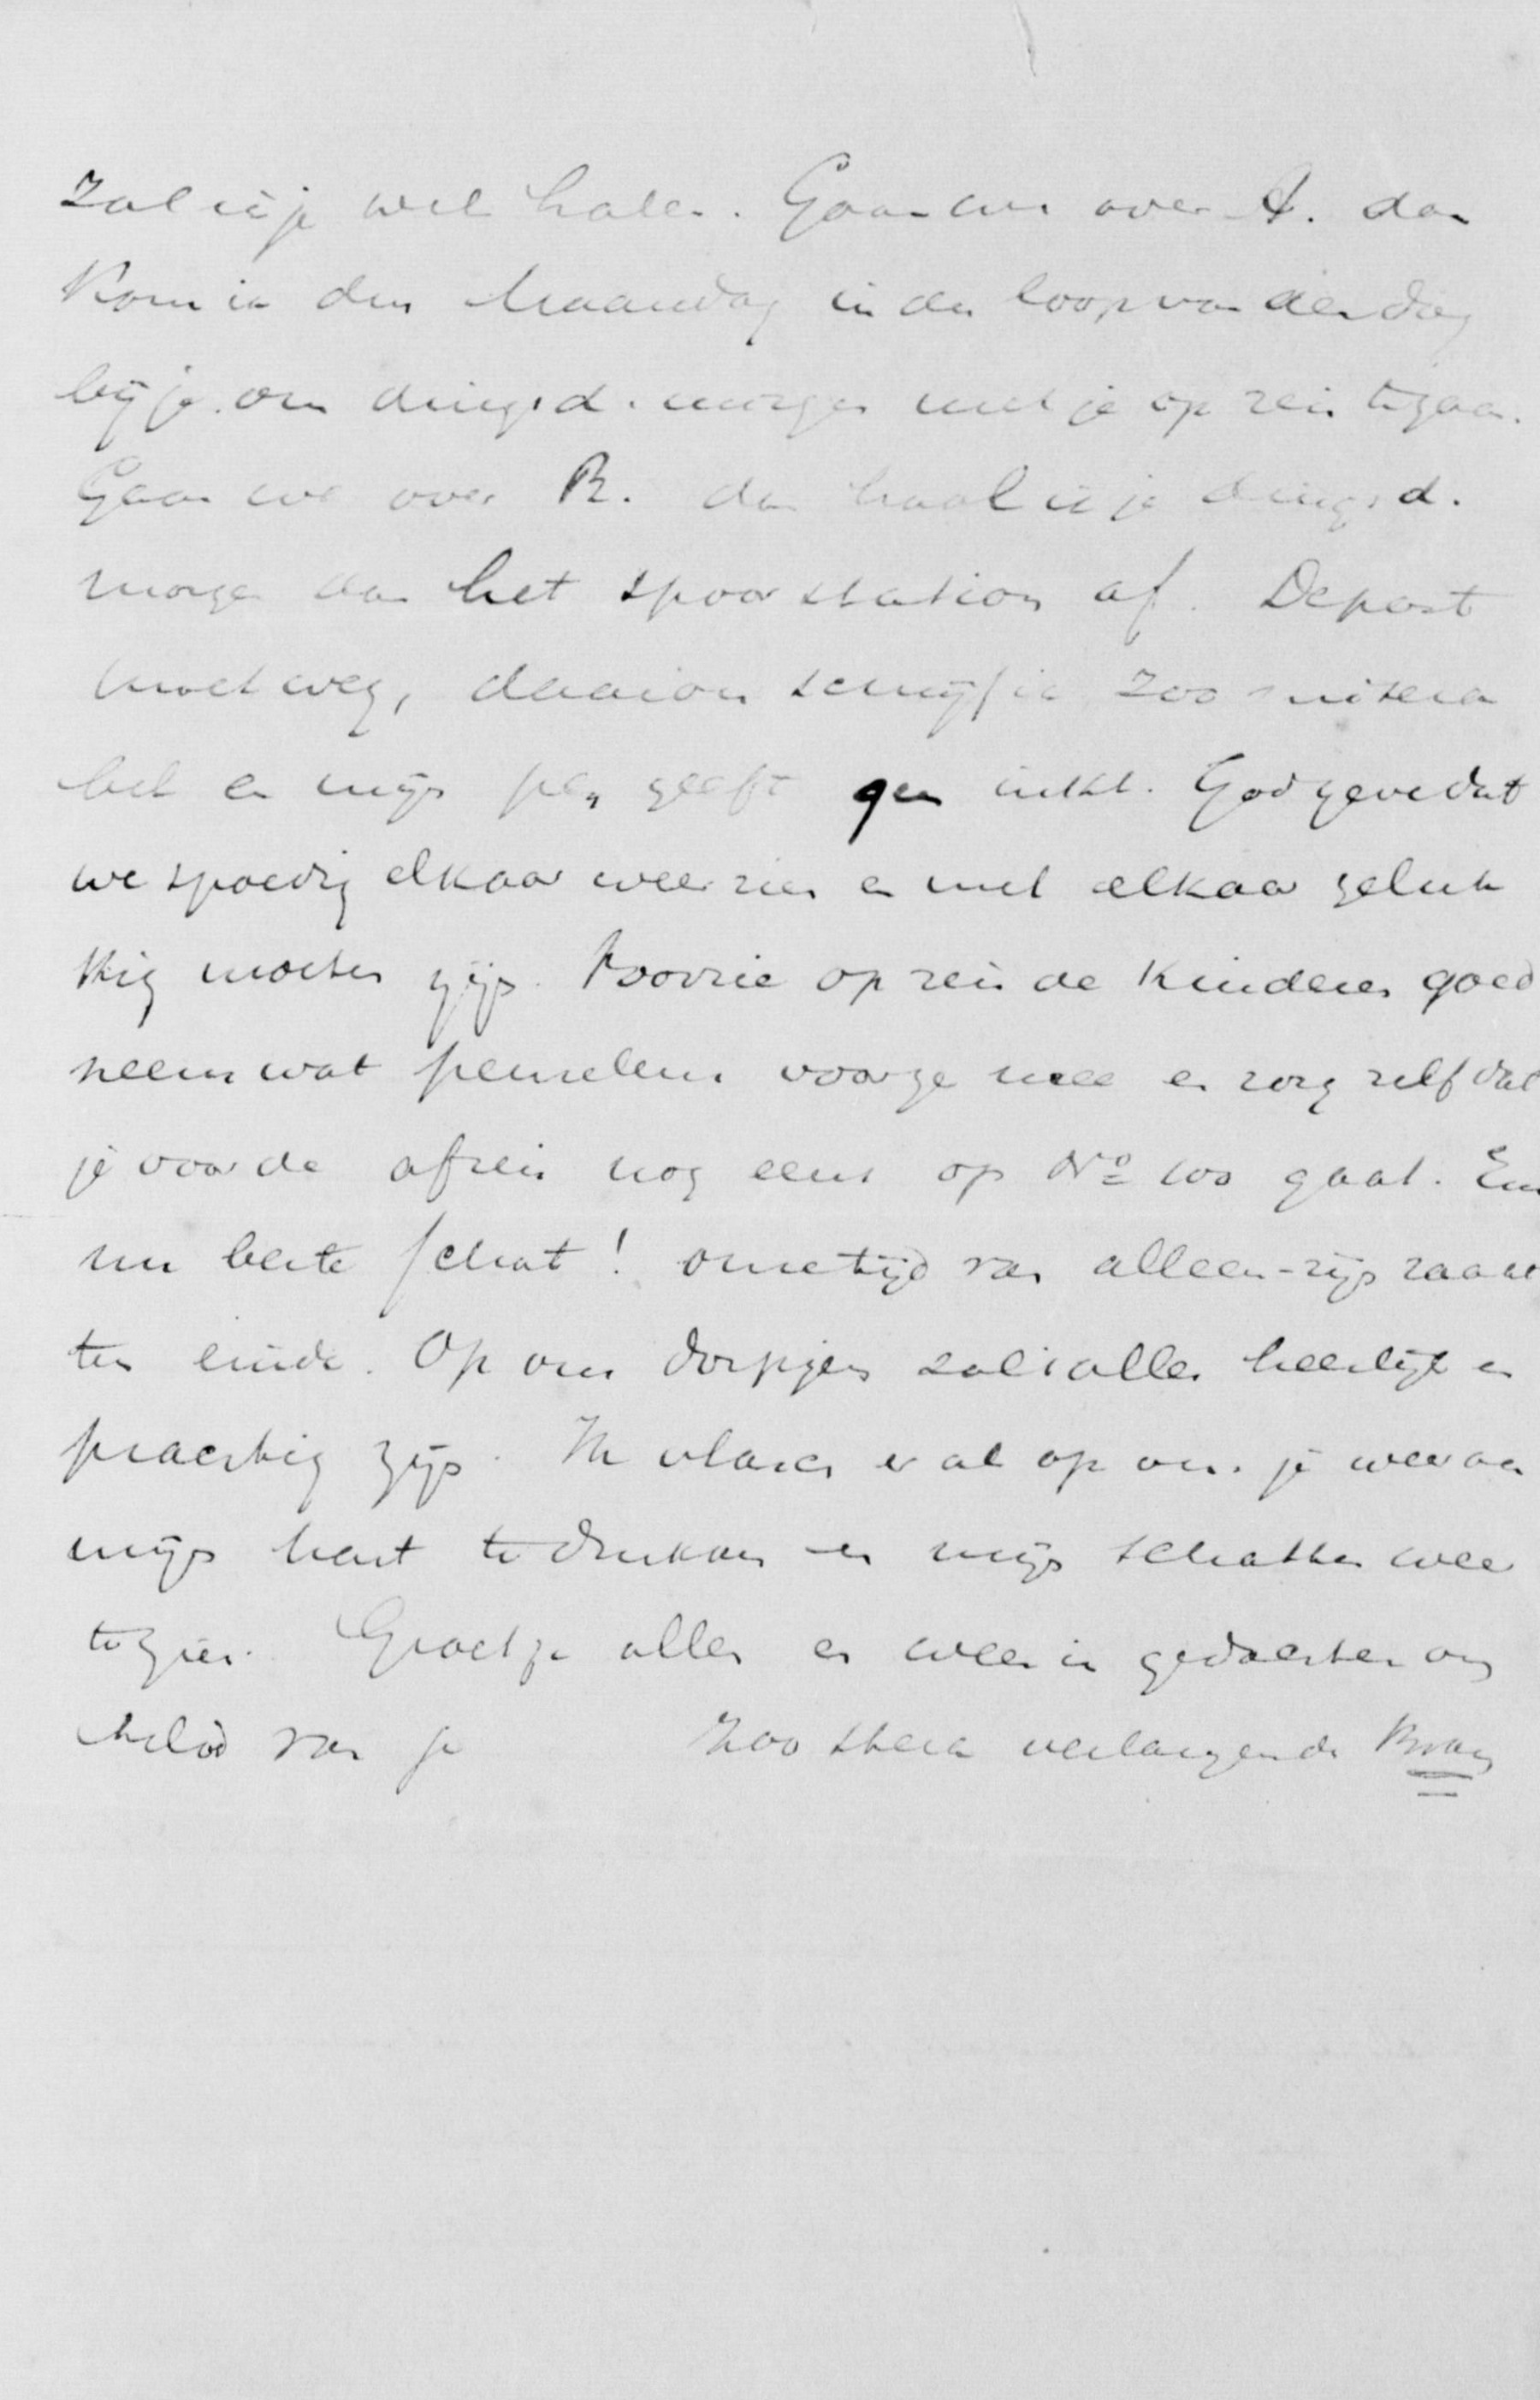 zal ik je wel halen. Gaan we over A. dan
kom ik den Maandag in den loop van den dag
bij je om dingsd. morgen met je op reis te gaan.
Gaan we over R. dan haal ik je dingsd.
morgen van het spoorstation af. De post
moet weg, daarom schrijf ik zoo
en mijn pen geeft gen inkt. God geve dat
we spoedig elkaar weer zien en met elkaar geluk
kig moeten zijn. Voorzie op reis de kinderen goed
neem wat voor ze mee en zorg zelf dat
je voor de afreis nog eens op No 100 gaat. En
nu beste schat! onze tijd van alleen-zijn raakt
ten einde. Op ons dorpjen zal 't alles heerlijk en
prachtig zijn. Ik vlam er al op om je weer aan
mijn hart te drukken en mijn schatten weer
te zien. Groet ze allen en wees in gedachten om
helsd van je zoo sterk verlangende Bram